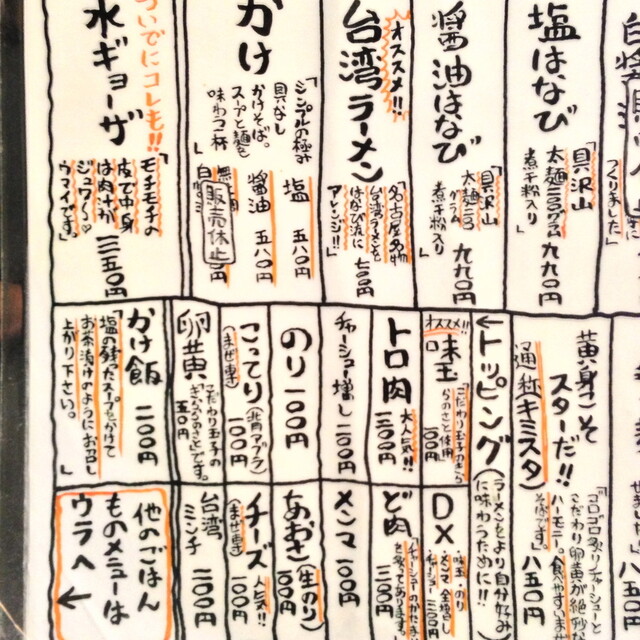 つくりました」
塩はなび
「具沢山
太麺二二〇グラム
煮干粉入り」
九九〇円
醤油はなび
「具沢山
煮干粉入り」
九九〇円
オススメ!!
台湾ラーメン
「名古屋名物
台湾ラーメンを
はなび流に
アレンジ!!」
七五〇円
かけ
「シンプルの極み
具なし
かけそば。
スープと麺を
味わう一杯」
塩 五八〇円
醤油 五八〇円
販売休止
ついでにコレも!!
水ギョーザ
「モチモチの
皮で中身
は肉汁が
ジュワ〜♡
ウマイです。」
三五〇円
黄身こそ
スターだ!!
通称キミスタ
「ゴロゴロ炙りチャーシューと
こだわり卵黄が絶妙な
ハーモニー。食べやすいまぜ
そばです。」
八五〇円
←トッピング
(ラーメンをより自分好み
に味わうために!!)
オススメ!!
味玉
「こだわり玉子のきら
らのさと使用」
一〇〇円
DX
・味玉・のり
・メンマ 全増し
・チャーシュー
三五〇円
トロ肉
大人気!!
三〇〇円
ど肉
三〇〇円
チャーシュー増し
二〇〇円
メンマ
一〇〇円
のり
一〇〇円
あおさ(生のり)
一〇〇円
こってり(背アブラ)
(まぜ専き)
一〇〇円
チーズ
人気!!
一〇〇円
卵黄
「こだわり玉子の
きららのさと」です。
五〇円
台湾
ミンチ
二〇〇円
かけ飯
二〇〇円
「塩の残ったスープをかけて
お茶漬けのようにお召し
上がり下さい。」
他のごはん
ものメニューは
ウラへ←